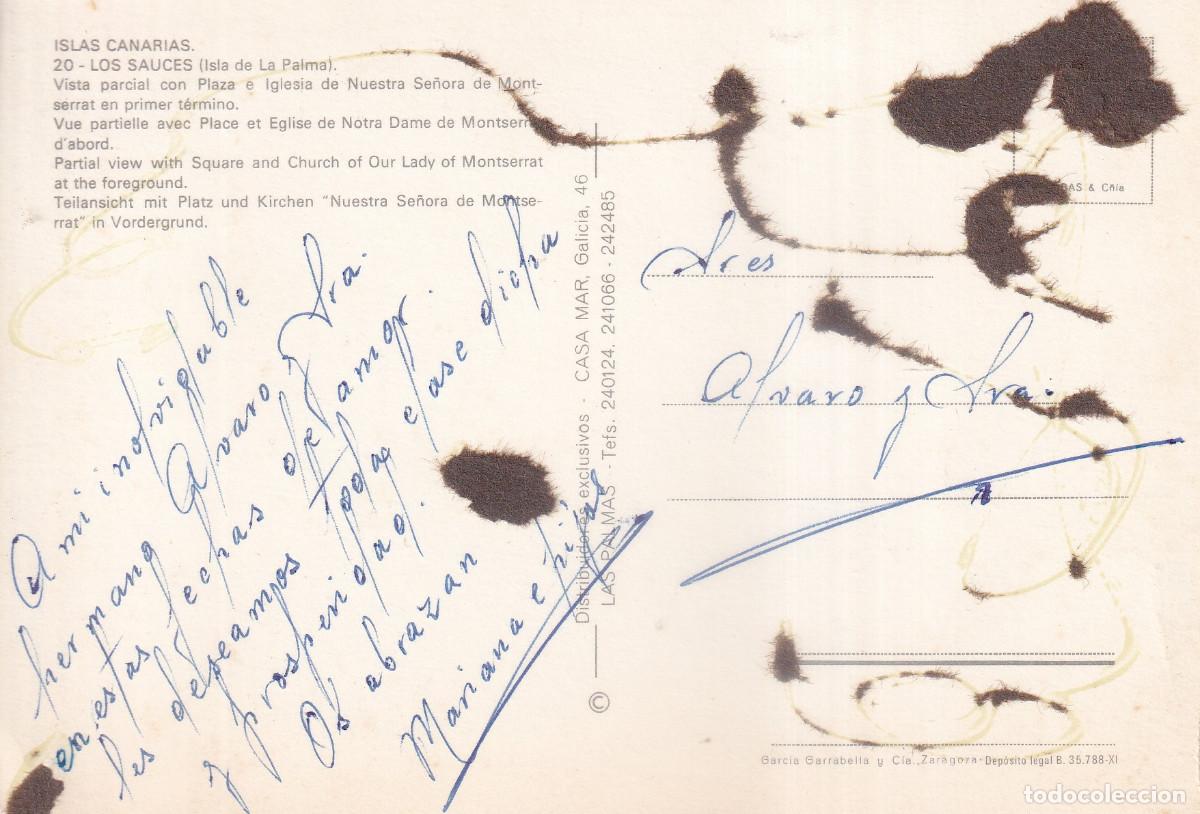 ISLAS CANARIAS.
20 - LOS SAUCES (Isla de La Palma).
Vista parcial con Plaza e Iglesia de Nuestra Señora de Mont-
serrat en primer término.
Vue partielle avec Place et Eglise de Notra Dame de Montserrat
d'abord.
Partial view with Square and Church of Our Lady of Montserrat
at the foreground.
Teilansicht mit Platz und Kirchen "Nuestra Señora de Montse-
rrat" in Vordergrund.
A mi inolvidable
hermano Alvaro y Sra.
en estas fechas de amor
les deseamos toda clase dicha
y prosperidad.
Os abrazan
Mariana e hijas
Distribuidores exclusivos - CASA MAR, Galicia, 46
LAS PALMAS - Tefs. 240124. 241066 - 242485
©
AS & Cñia
Sres
Alvaro y Sra.
Garcia Garrabella y Cía., Zaragoza - Depósito legal B. 35.788-XI
todocoleccion